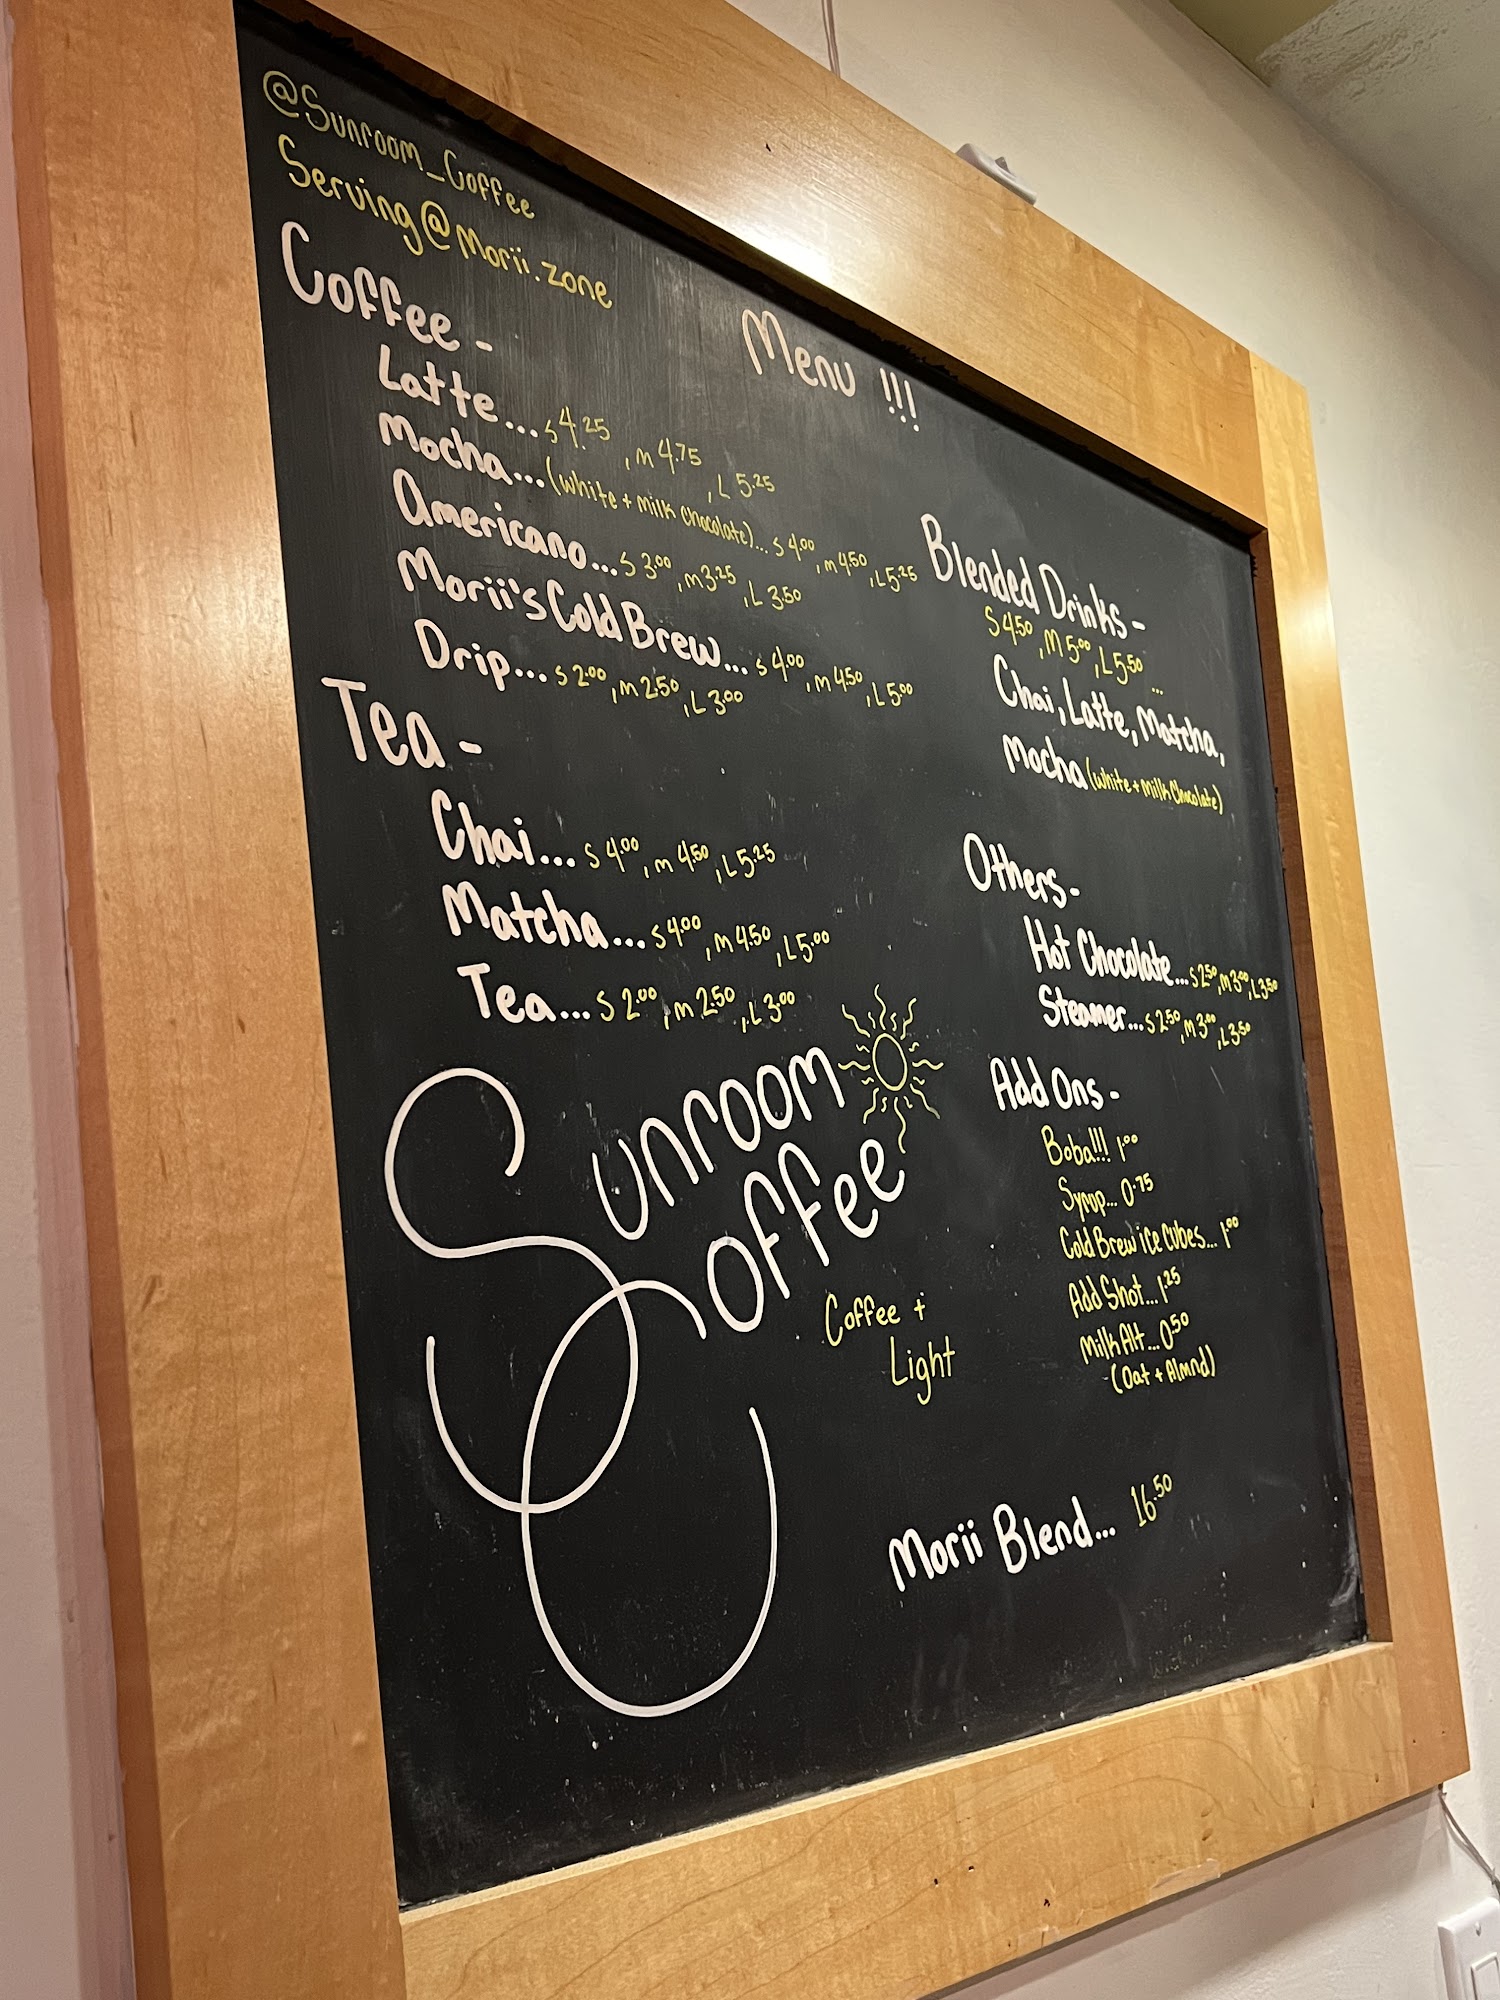 @Sunroom_Coffee
Serving@Morii.zone
Menu !!!
Coffee -
Latte... S 4.25, M 4.75, L 5.25
Mocha... (White + Milk Chocolate)... S 4.00, M 4.50, L 5.25
Americano... S 3.00, M 3.25, L 3.50
Morii's Cold Brew... S 4.00, M 4.50, L 5.00
Drip... S 2.00, M 2.50, L 3.00
Tea -
Chai... S 4.00, M 4.50, L 5.25
Matcha... S 4.00, M 4.50, L 5.00
Tea... S 2.00, M 2.50, L 3.00
Sunroom
Coffee
Coffee +
Light
Blended Drinks -
S 4.50, M 5.00, L 5.50 ...
Chai, Latte, Matcha,
Mocha (White + Milk Chocolate)
Others -
Hot Chocolate... S 2.50, M 3.00, L 3.50
Steamer... S 2.50, M 3.00, L 3.50
Add Ons -
Boba!!! 1.00
Syrup... 0.75
Cold Brew ice cubes... 1.00
Add Shot... 1.25
Milk Alt... 0.50
(Oat + Almnd)
Morii Blend... 16.50